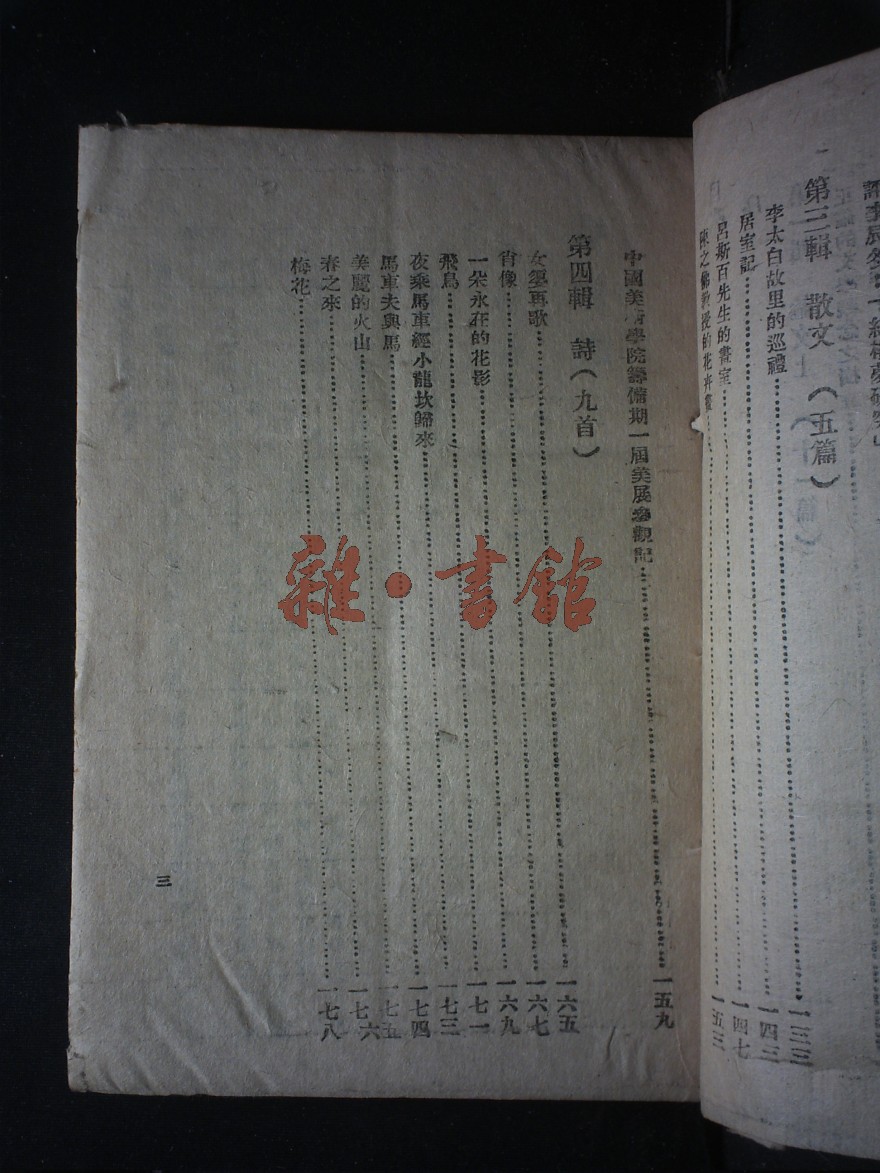 第三輯 散文 (五篇)
李太白故里的巡禮……一三三
居室記……一四三
呂斯百先生的畫室……一四七
陳之佛教授的花卉畫……一五三
中國美術學院籌備期一屆美展參觀記……一五九
第四輯 詩(九首)
女 再歌……一六五
肖像……一六七
一朵永在的花影……一六九
飛鳥……一七一
夜乘馬車經小龍坎歸來……一七三
馬車夫與馬……一七四
美麗的火山……一七五
春之來……一七六
梅花……一七八
三
雜·書館